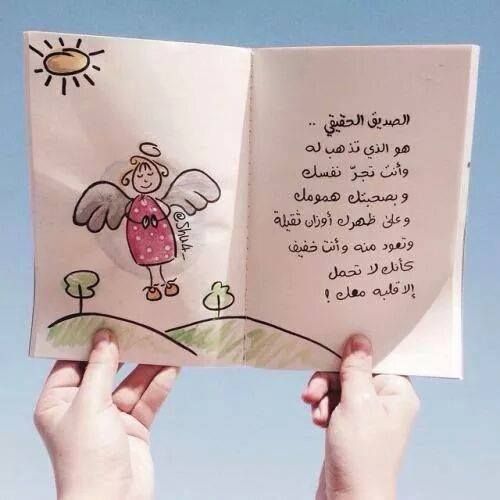 الصديق الحقيقي ..
هو الذي تذهب له
وأنت تجرّ نفسك
وبصحبتك همومك
وعلى ظهرك أوزان ثقيلة
وتعود منه وأنت خفيف
كأنك لا تحمل
إلا قلبه معك !
@Shus_